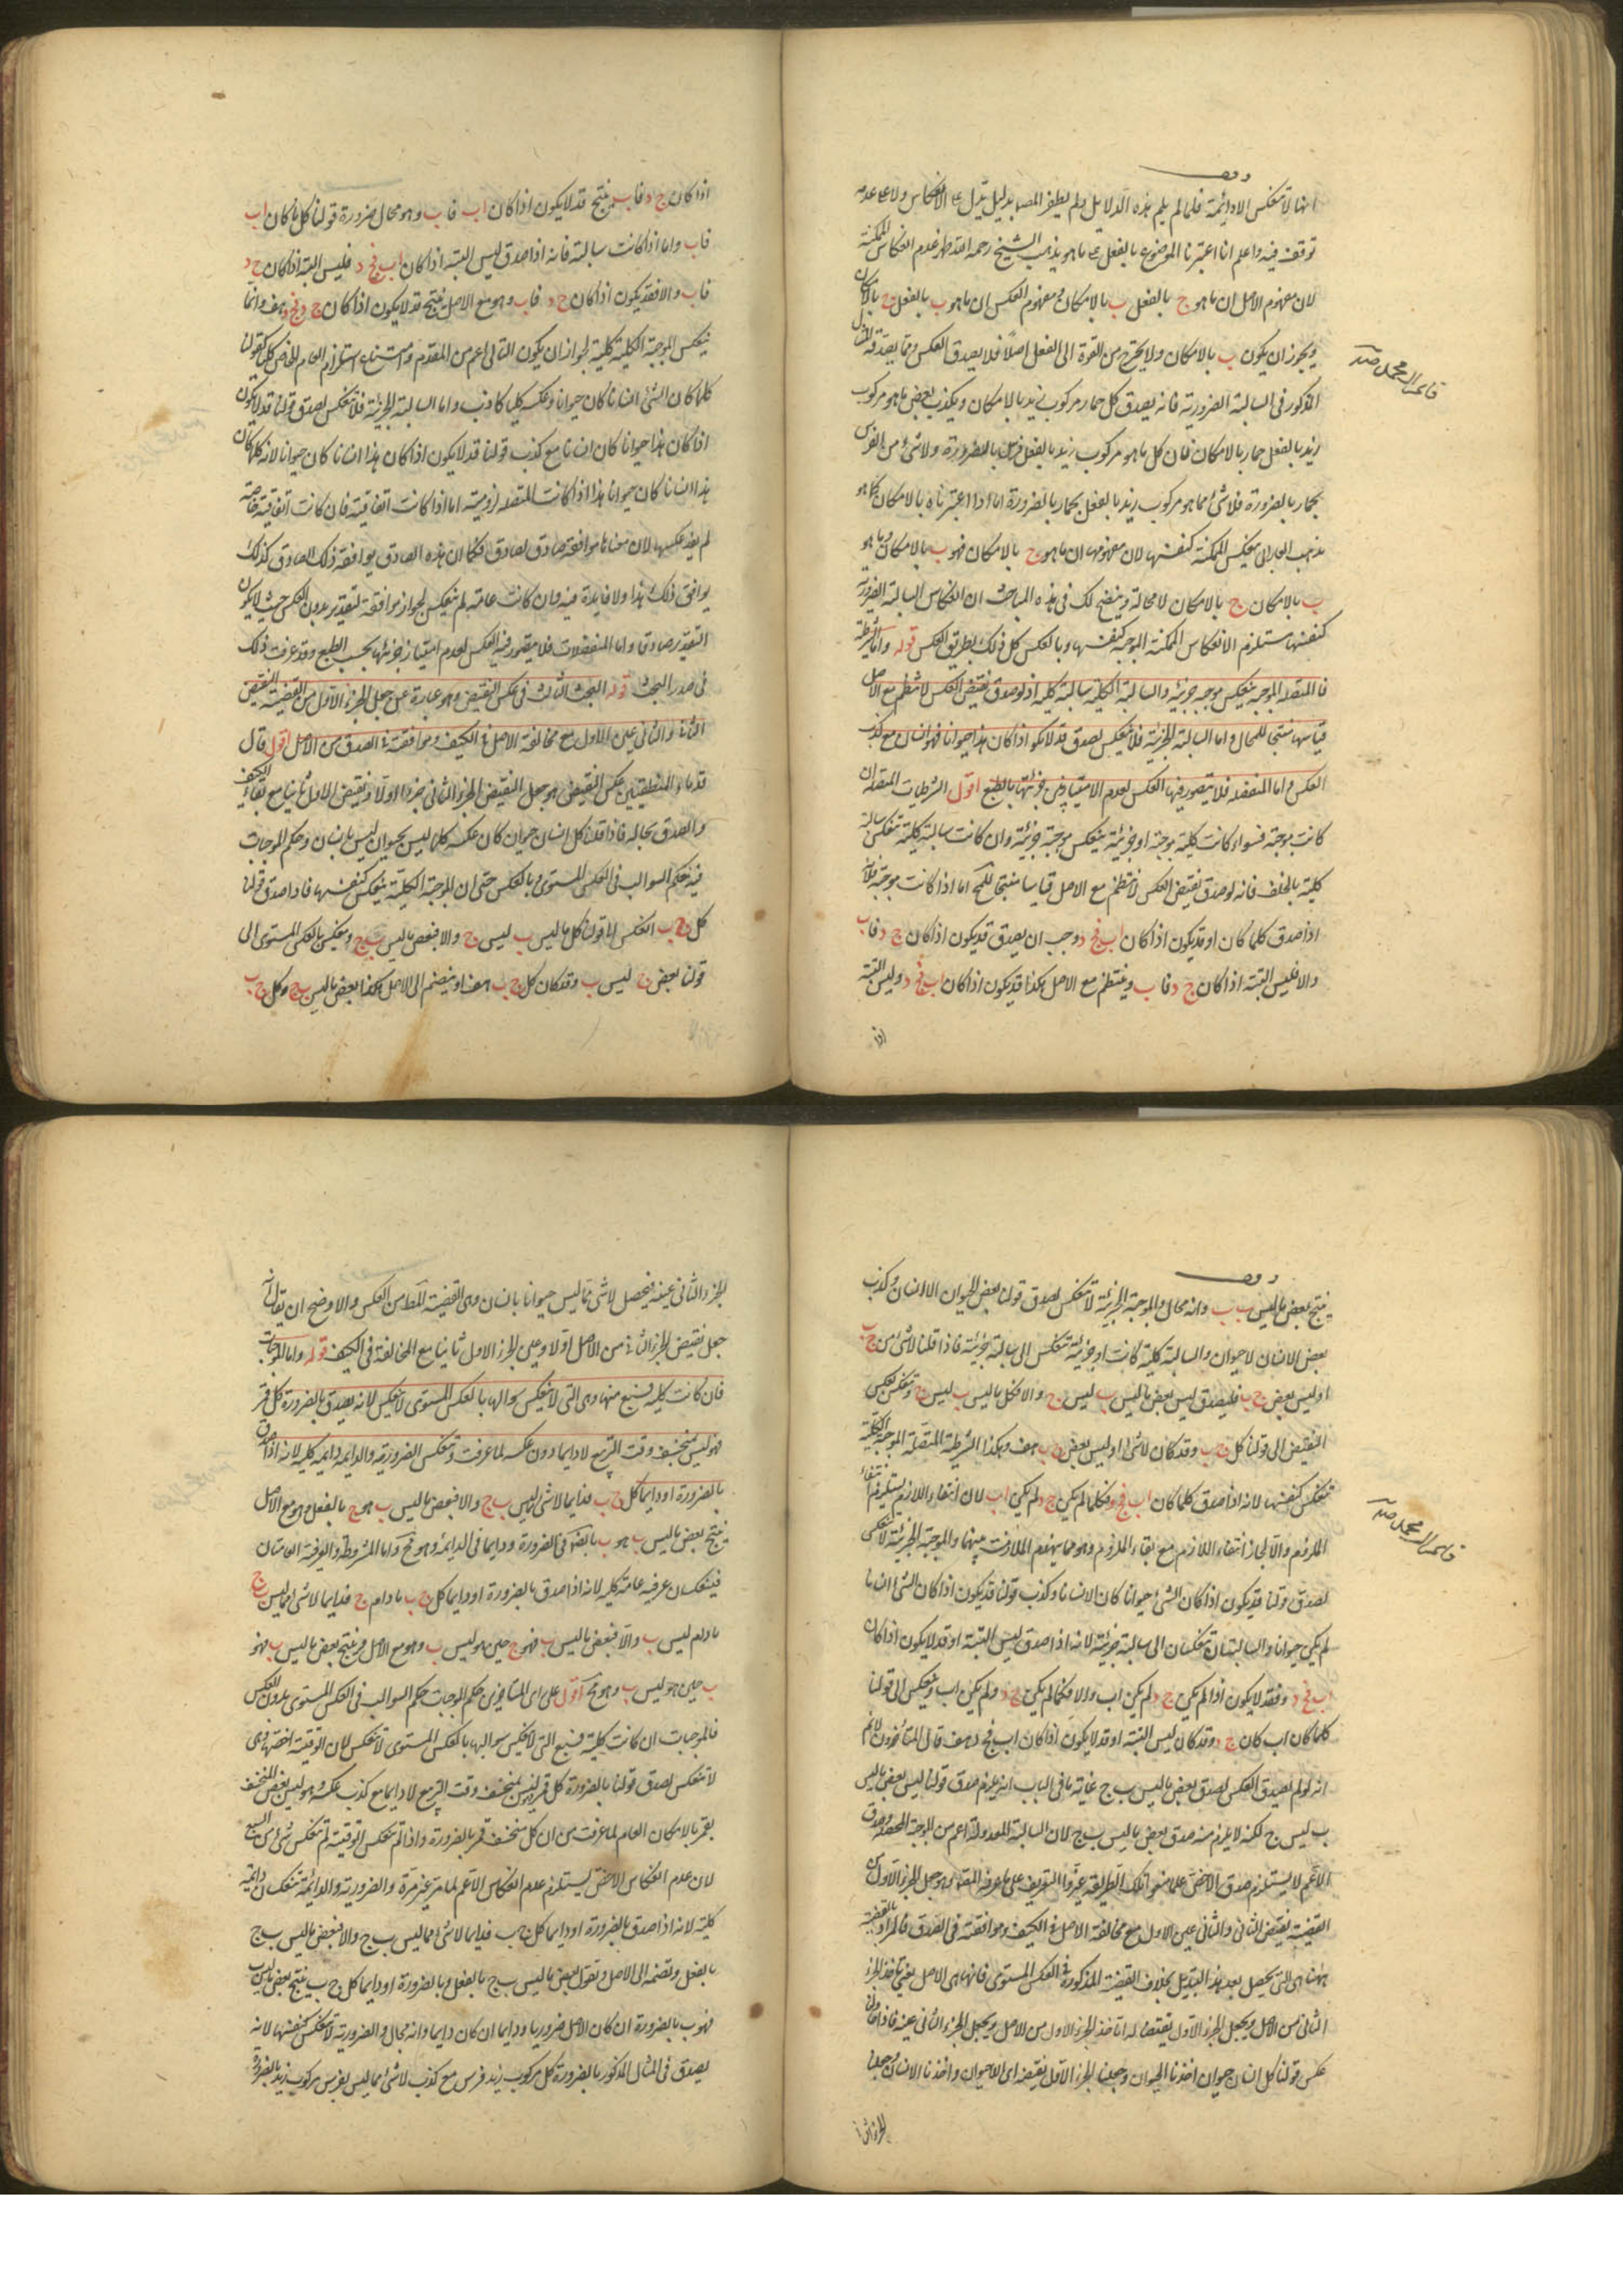 وقف
انها لا تنعكس الا دائمة فلما لم يتم هذه الدلايل ولم يظفر المصنف بدليل يدل على الانعكاس ولا على عدمه
توقف فيه واعلم انا اذا اعتبرنا الموضوع بالفعل كما هو مذهب الشيخ رحمه الله ظهر عدم انعكاس الممكنة
لان مفهوم الاصل ان ما هو ج بالفعل ب بالامكان ومفهوم العكس ان ما هو ب بالفعل ج بالامكان
ويجوز ان يكون ب بالامكان ولا يخرج من القوة الى الفعل اصلا فلا يصدق العكس ومما يصدقه المثال
المذكور في السالبة الضرورية فانه يصدق كل حمار مركوب زيد بالامكان ويكذب بعض ما هو مركوب
زيد بالفعل حمار بالامكان فان كل ما هو مركوب زيد بالفعل فرس بالضرورة ولا شئ من الفرس
بحمار بالضرورة فلا شئ مما هو مركوب زيد بالفعل بحمار بالضرورة اما اذا اعتبرناه بالامكان كما هو
مذهب الفارابى ينعكس الممكنة كنفسها لان مفهومها ان ما هو ج بالامكان فهو ب بالامكان وما هو
ب بالامكان ج بالامكان لا محالة ويتضح لك في هذه المباحث ان انعكاس السالبة الضرورية
كنفسها مستلزم لانعكاس الممكنة الموجبة كنفسها وبالعكس كل ذلك بطريق العكس قوله واما الشرطية
فالمتصلة الموجبة ينعكس موجبة جزئية والسالبة الكلية سالبة كلية اذ لو صدق نقيض العكس لانتظم مع الاصل
قياسا منتجا للمحال واما السالبة الجزئية فلا ينعكس لصدق قد لا يكون اذا كان هذا حيوانا فهو انسان مع كذب
العكس واما المنفصلة فلا يتصور فيها العكس لعدم الامتياز بين جزئيها بالطبع اقول الشرطيات المتصلة ان
كانت موجبة فسواء كانت كلية موجبة او جزئية ينعكس موجبة جزئية وان كانت سالبة كلية تنعكس سالبة
كلية بالخلف فانه لو صدق نقيض العكس لانتظم مع الاصل قياسا منتجا للمح اما اذا كانت موجبة فلانه
اذا صدق كلما كان او قد يكون اذا كان اب فج د وجب ان يصدق قد يكون اذا كان ج د فاب
والا فليس البتة اذا كان ج د فاب وينتظم مع الاصل هكذا قد يكون اذا كان اب فج د وليس البتة
اذا
اذا كان ج د فاب ينتج قد لا يكون اذا كان اب فاب وهو محال ضرورة قولنا كلما كان اب
فاب واما اذا كانت سالبة فانه اذا صدق ليس البتة اذا كان اب فج د فليس البتة اذا كان ج د
فاب والا فقد يكون اذا كان ج د فاب وهو مع الاصل ينتج قد لا يكون اذا كان ج د فج د هف وانما
ينعكس الموجبة الكلية كلية لجواز ان يكون التالى اعم من المقدم وامتناع استلزام العام للخاص كليا كقولنا
كلما كان الشئ انسانا كان حيوانا وعكسه كليا كاذب واما السالبة الجزئية فلا تنعكس لصدق قولنا قد لا يكون
اذا كان هذا حيوانا كان انسانا مع كذب قولنا قد لا يكون اذا كان هذا انسانا كان حيوانا لانه كلما كان
هذا انسانا كان حيوانا هذا اذا كانت المتصلة لزومية اما اذا كانت اتفاقية فان كانت اتفاقية خاصة
لم يفد عكسها لان معناها موافقة صادق لصادق فكما ان هذه الصادق يوافقه ذلك الصادق كذلك
يوافق ذلك هذا ولا فايدة فيه وان كانت عامة لم ينعكس لجواز موافقة لتقدير بدون العكس حيث لا يكون
التقدير صادقا واما المنفصلات فلا يتصور فيه العكس لعدم امتياز جزئيها بحسب الطبع وقد عرفت ذلك
في صدر البحث قوله البحث الثالث في عكس النقيض وهو عبارة عن جعل الجزء الاول من القضية نقيض
الثانى والثانى عين الاول مع مخالفة الاصل في الكيف وموافقته في الصدق من الاصل اقول قال
قدماء المنطقيين عكس النقيض هو جعل النقيض الجزء الثانى جزءا اولا ونقيض الاول ثانيا مع بقاء الكيف
والصدق بحاله فاذا قلنا كل انسان حيوان كان عكسه كلما ليس بحيوان ليس بانسان وحكم الموجبات
فيه حكم السوالب في العكس المستوى وبالعكس حتى ان الموجبة الكلية ينعكس كنفسها فاذا صدق قولنا
كل ج ب انعكس الى قولنا كل ما ليس ب ليس ج والا فبعض ما ليس ب ج وينعكس بالعكس المستوى الى
قولنا بعض ج ليس ب وقد كان كل ج ب هف او ينضم الى الاصل هكذا بعض ما ليس ب ج وكل ج ب
وقف
ينتج بعض ما ليس ب ب وانه محال والموجبة الجزئية لا تنعكس لصدق قولنا بعض الحيوان لا انسان وكذب
بعض الانسان لا حيوان والسالبة كلية كانت او جزئية تنعكس الى سالبة جزئية فاذا قلنا لا شئ من ج ب
او ليس بعض ج ب فليصدق ليس بعض ما ليس ب ليس ج والا فكل ما ليس ب ليس ج وتنعكس بعكس
النقيض الى قولنا كل ج ب وقد كان لا شئ او ليس بعض ج ب هف وهكذا الشرطية المتصلة الموجبة الكلية
تنعكس كنفسها لانه اذا صدق كلما كان اب فج د فكلما لم يكن ج د لم يكن اب لان انتفاء اللازم يستلزم انتفاء
الملزوم والا لجاز انتفاء اللازم مع بقاء الملزوم وهو مما يهدم الملازمة بينهما والموجبة الجزئية لا تنعكس
لصدق قولنا قد يكون اذا كان الشئ حيوانا كان لا انسانا وكذب قولنا قد يكون اذا كان الشئ انسانا
لم يكن حيوانا والسالبتان تنعكسان الى سالبة جزئية لانه اذا صدق ليس البتة او قد لا يكون اذا كان
اب فج د فقد لا يكون اذا لم يكن ج د لم يكن اب والا فكلما لم يكن ج د لم يكن اب وينعكس الى قولنا
كلما كان اب كان ج د وقد كان ليس البتة او قد لا يكون اذا كان اب فج د هف قال المتاخرون لا نم
انه لو لم يصدق العكس لصدق بعض ما ليس ب ج غاية ما في الباب انه يلزم صدق قولنا ليس بعض ما ليس
ب ليس ج لكنه لا يلزم منه صدق بعض ما ليس ب ج لان السالبة المعدولة اعم من الموجبة المحصلة وصدق
الاعم لا يستلزم صدق الاخص علما منعوا تلك الطريقة غيروا التعريف على ما عرفه المصنف وهو جعل الجزء الاول من
القضية نقيض الثانى والثانى عين الاول مع مخالفة الاصل في الكيف وموافقته في الصدق فالمراد بالقضية
ههنا هى التى تحصل بعد هذا التبديل بخلاف القضية المذكورة في العكس المستوى فانها هى الاصل يعنى ناخذ الجزء
الثانى من الاصل ويجعل الجزء الاول نقيضا له اناخذ الجزء الاول من الاصل ويجعل الجزء الثانى عينه فاذا حاولنا
عكس قولنا كل انسان حيوان اخذنا الحيوان وجعلنا الجزء الاول نقيضه اى اللاحيوان واخذنا الانسان وجعلنا
الجزء الثانى
الجزء الثانى عينه فيحصل لا شئ مما ليس حيوانا بانسان وهى القضية المط من العكس والاوضح ان يقال انه
جعل نقيض الجزء الثانى من الاصل اولا وعين الجزء الاول ثانيا مع المخالفة في الكيف قوله واما الموجبات
فان كانت كلية فسبع منها وهى التى لا ينعكس سوالبها بالعكس المستوى لا تنعكس لانه يصدق بالضرورة كل قمر
فهو ليس بمنخسف وقت التربيع لا دايما دون عكسه لما عرفت وتنعكس الضرورية والدايمة دايمة كلية لانه اذا صدق
بالضرورة او دايما كل ج ب فدايما لا شئ مما ليس ب ج والا فبعض ما ليس ب هو ج بالفعل وهو مع الاصل
ينتج بعض ما ليس ب هو ب بالضرورة في الضرورة ودايما في الدايمة وهو مح واما المشروطة والعرفية العامتان
فينعكسان عرفية عامة كلية لانه اذا صدق بالضرورة او دايما كل ج ب مادام ج فدايما لا شئ مما ليس ب ج
مادام ليس ب والا فبعض ما ليس ب فهو ج حين هو ليس ب وهو مع الاصل ينتج بعض ما ليس ب فهو
ب حين هو ليس ب وهو مح اقول على راى المتاخرين حكم الموجبات حكم السوالب في العكس المستوى بدون العكس
فالموجبات ان كانت كلية فسبع التى لا تنعكس سوالبها بالعكس المستوى لا تنعكس لان الوقتية اخصها وهى
لا تنعكس لصدق قولنا بالضرورة كل قمر ليس بمنخسف وقت التربيع لا دايما مع كذب عكسه وهو ليس بعض المنخسف
بقمر بالامكان العام لما عرفت من ان كل منخسف قمر بالضرورة واذا لم تنعكس الوقتية لم تنعكس شئ من السبع
لان عدم انعكاس الاخص يستلزم عدم انعكاس الاعم لما مر غير مرة والضرورية والدائمة تنعكسان دائمة
كلية لانه اذا صدق بالضرورة او دايما كل ج ب فدايما لا شئ مما ليس ب ج والا فبعض ما ليس ب ج
بالفعل وتضمه الى الاصل وتقول بعض ما ليس ب ج بالفعل وبالضرورة او دايما كل ج ب ينتج بعض ما ليس ب
فهو ب بالضرورة ان كان الاصل ضروريا ودايما ان كان دايما وانه محال والضرورية لا تنعكس كنفسها لانه
يصدق في المثال المذكور بالضرورة كل مركوب زيد فرس مع كذب لا شئ مما ليس بفرس مركوب زيد بالضرورة